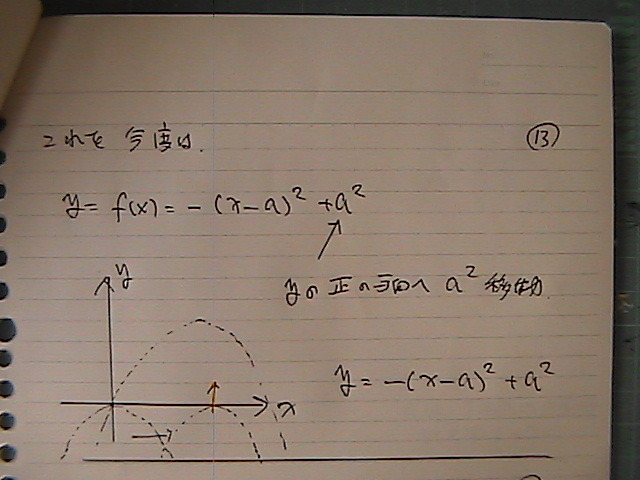 これを 今度は.
⑬
y = f(x) = -(x-a)² + a²
yの正の方向へ a² 移動.
y
x
y = -(x-a)² + a²